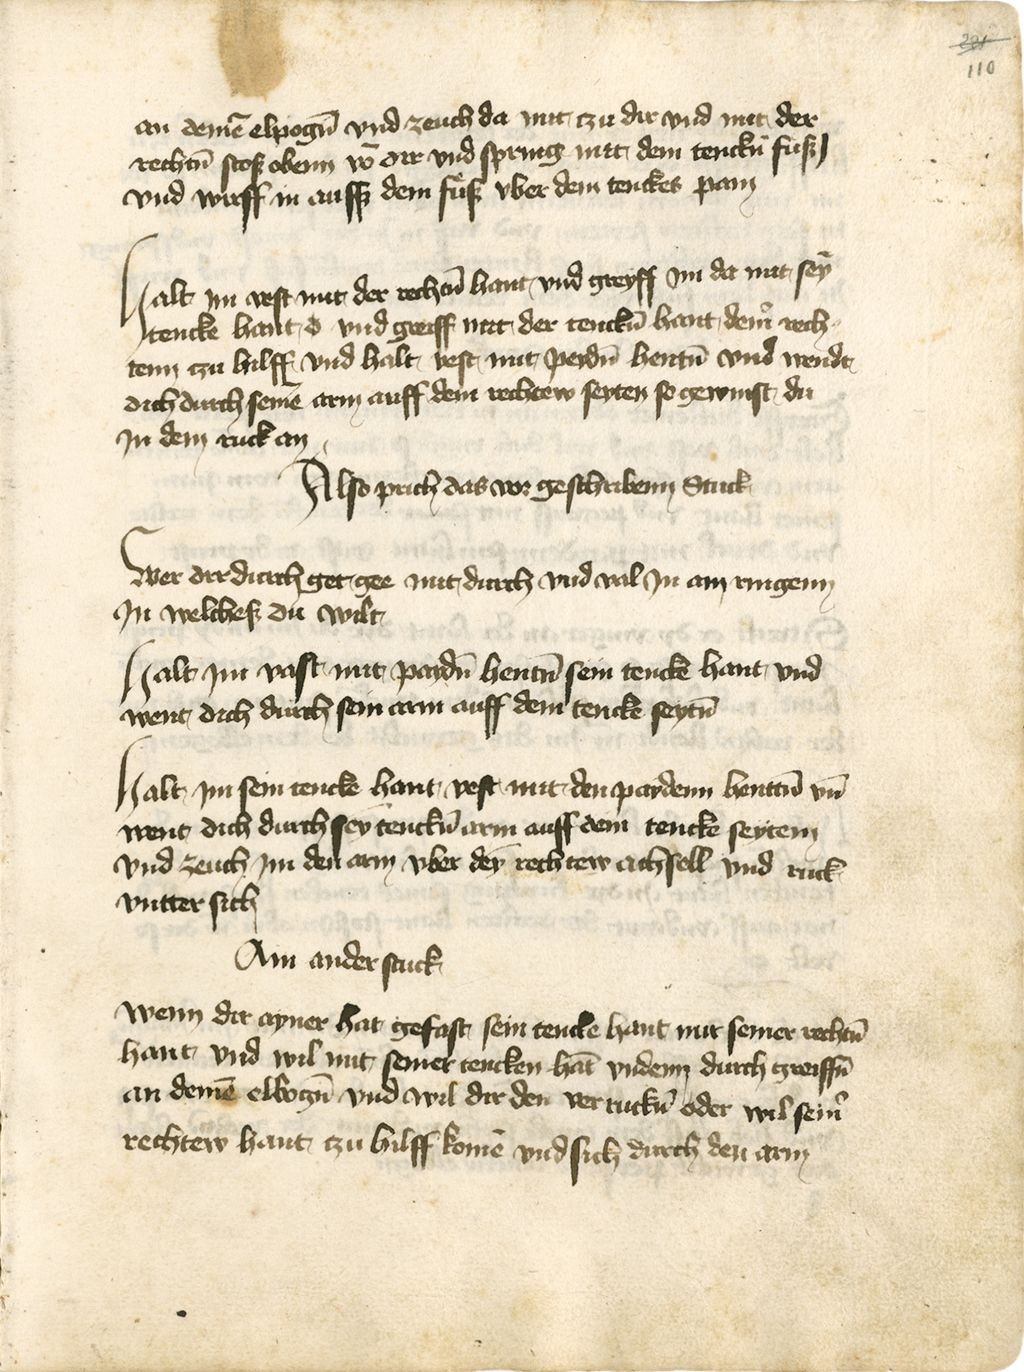 221
110
an deinē elpogñ vnd zeuch da mit tzu dir vnd mit der
rechtñ stosz obenn vō dir vnd spring mit dem tenckñ fusz
vnd wirff in ausz dem fusz vber dem tenckes pain
Halt im vest mit der rechtñ hant vnd greyff im da mit sey̅
tencke hant vnd greiff mit der tenckñ hant deinr̄ rech
tenn tzu hilff vnd halt vest mit peydñ hentñ vnd wendt
dich durch seinē arm auff dem rechtew seyten so gewinst du
In dem ruck an
Also prich das vor geschribenn Stuck
Wer dir durch get gee mit durch vnd val In am ringenn
In welchesz du wilt
Halt im vast mit paydñ hentñ sein tencke hant vnd
went dich durch sein arm auff dem tencke seytñ
Halt im sein tencke hant vest mit den paydenn henttñ vñ
went dich durch sey̅ tenckñ arm auff dem tencke seytenn
vnd zeuch im den arm vber dey̅ rechtew achsell vnd ruck
vntter sich
Ain ander stuck
Wenn dir ayner hat gefast sein tencke hant mit seiner rechtñ
hant vnd wil mit seiner tencken hāt vndenn durch greiffñ
an deinē elbogñ vnd wil dir den ver ruckñ oder wil seinr̄
rechtew hant tzu hilff komē vnd sich durch den arm